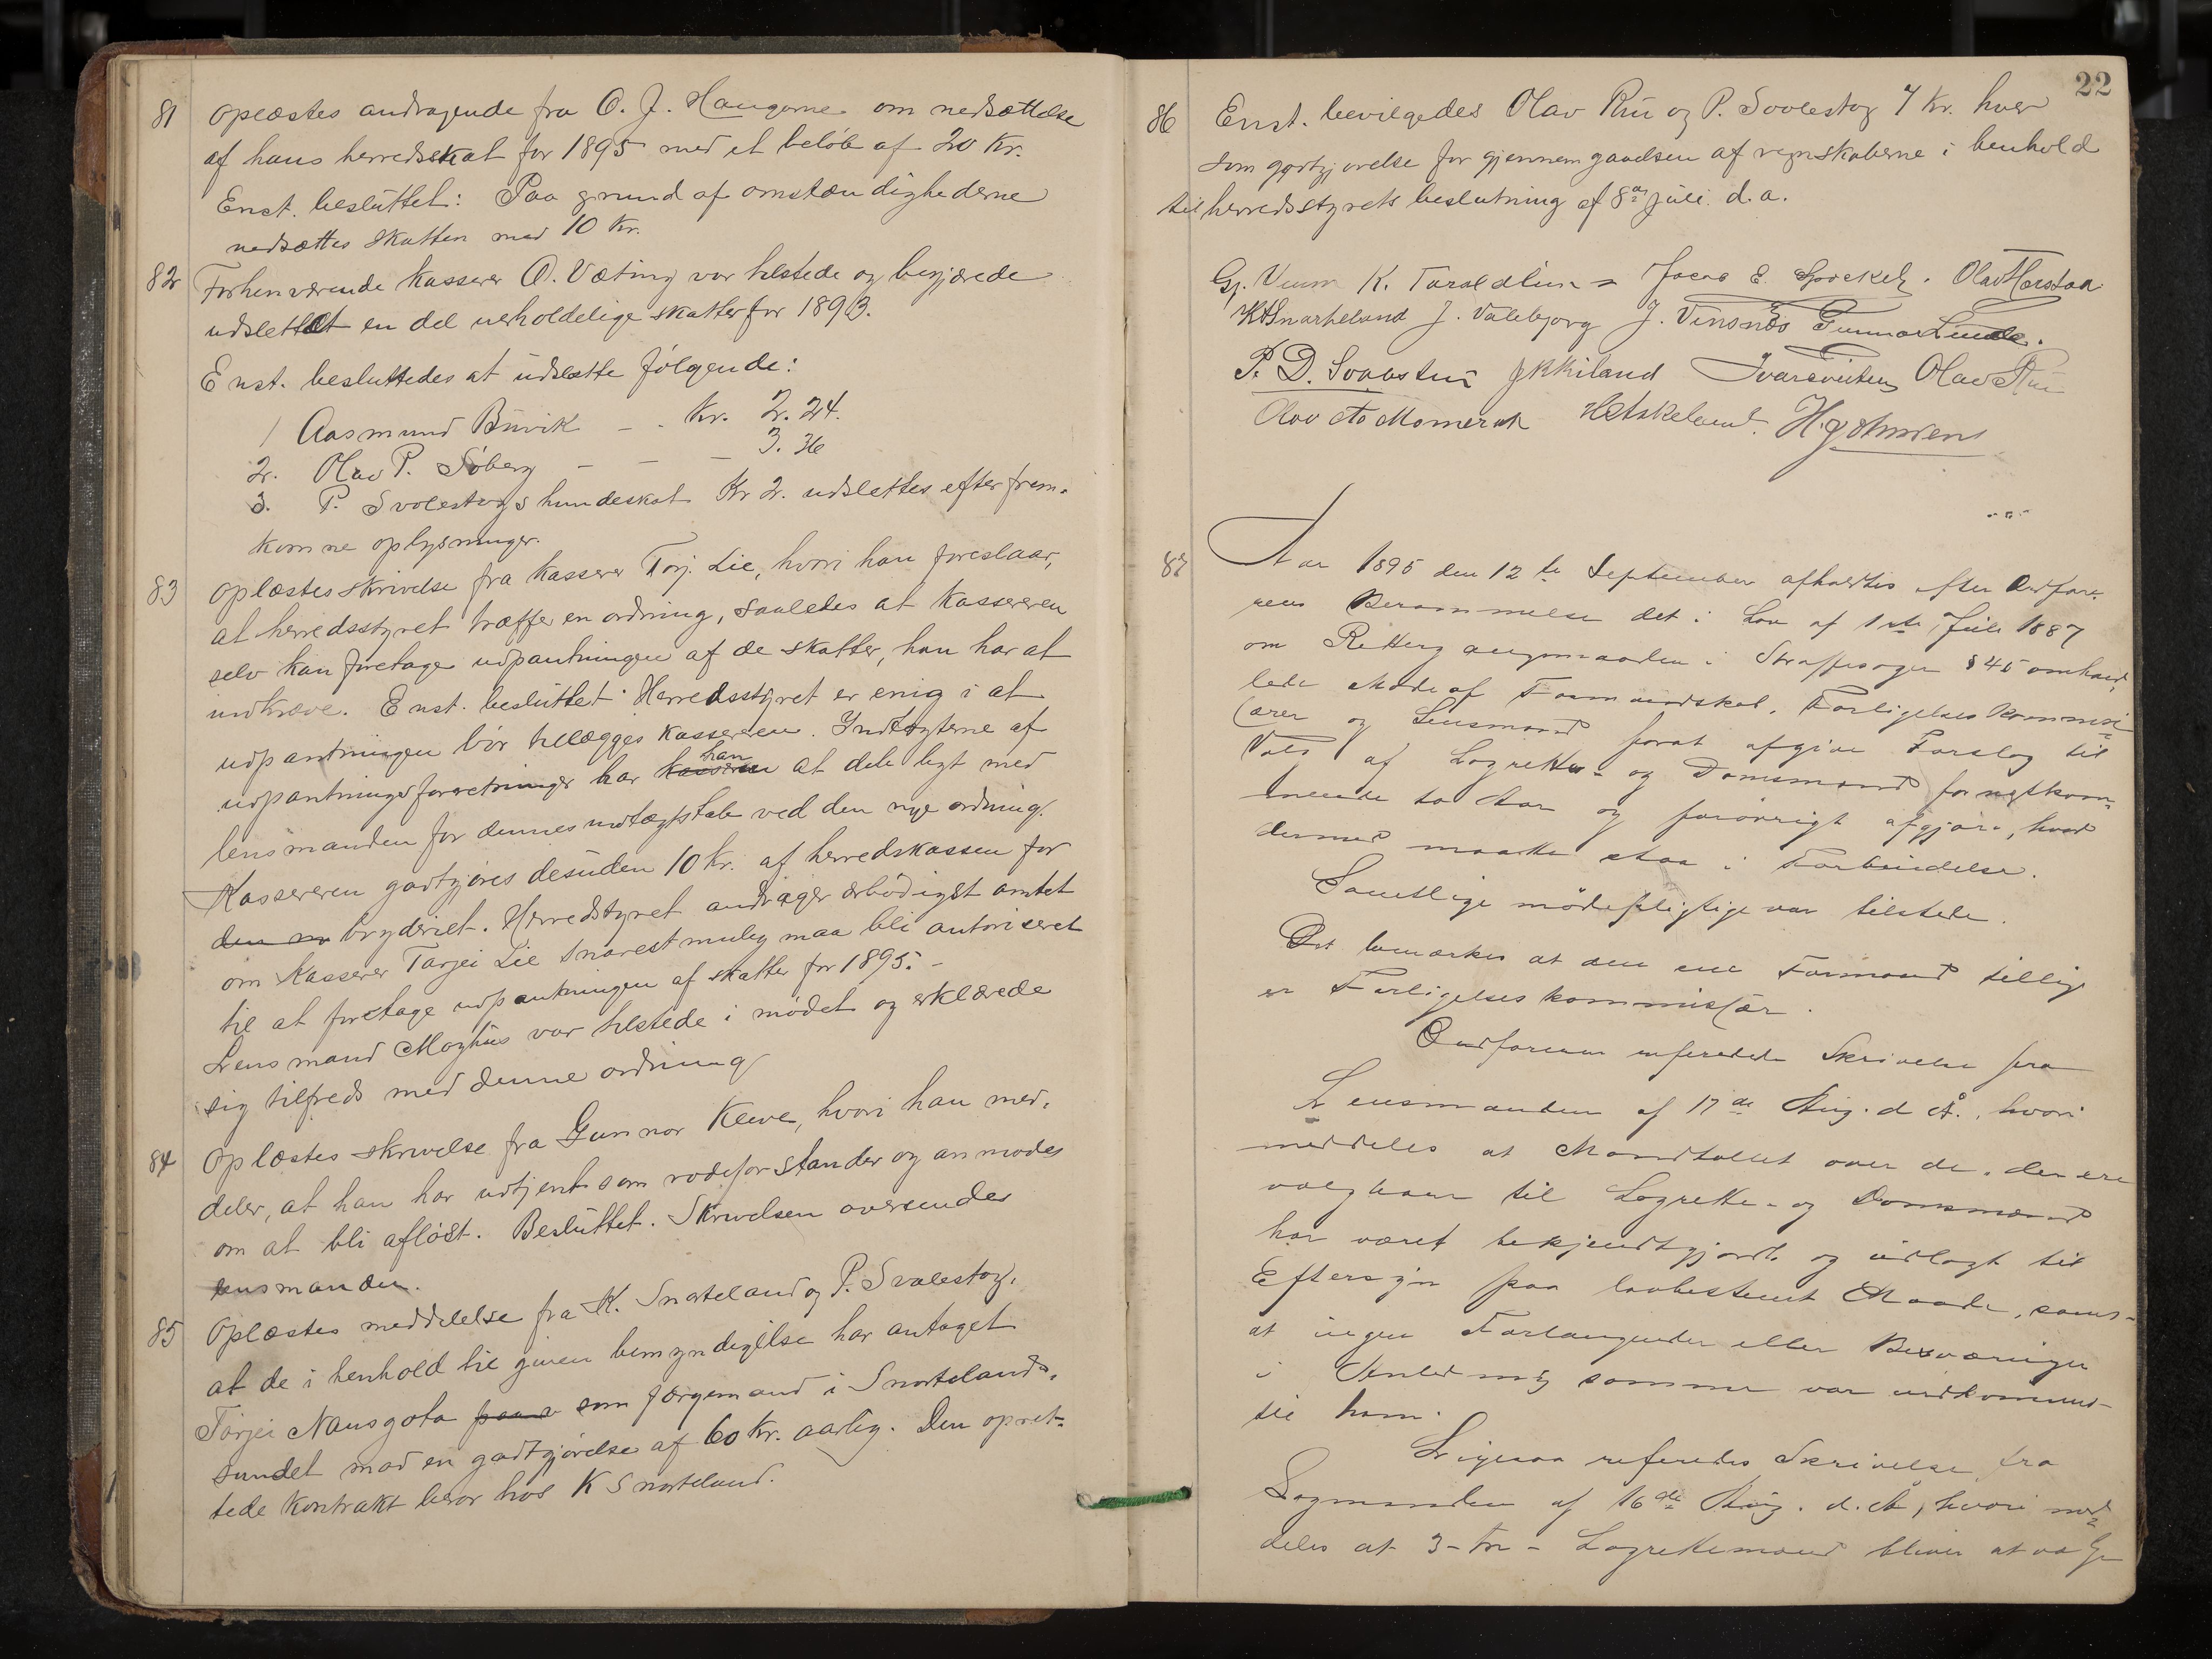 81 Oplæstes andragende fra O. J. Haugerne om nedsættelse
af hans herredsskat for 1895 med et beløb af 20 Kr.
Enst. besluttet: Paa grund af omstændighederne
nedsættes skatten med 10 Kr.
82 Forhenværende kasserer O. Væting var tilstede og begjærede
udslettet en del uerholdelige skatter for 1893.
Enst. besluttedes at udslette følgende:
1 Aasmund Buvik - - Kr. 2.24.
2. Olav P. Söberg - - - 3.36
3. P. Svolestogs hundeskat Kr 2. udslettes efter frem-
komne oplysninger.
83 Oplæstes skrivelse fra kasserer Torj. Lie, hvori han foreslaar,
at herredsstyret træffer en ordning, saaledes at kassereren
selv kan foretage udpantningen af de skatter, han har at
indkræve. Enst. besluttet: Herredsstyret er enig i at
udpantningen bör tillægges kassereren. Indtægterne af
udpantningsforretninger har han at dele ligt med
lensmanden for dennes indtægtstab ved den nye ordning.
Kassereren godtgjöres desuden 10 kr. af herredskassen for
bryderiet. Herredstyret andrager ærbödigst amtet
om kasserer Tarjei Lie snarest mulig maa bli autoriseret
til at foretage udpantningen af skatter for 1895. -
Lensmand Moghus var tilstede i mödet og erklærede
sig tilfreds med denne ordning
84 Oplæstes skrivelse fra Gunnar Kleve, hvori han med-
deler, at han har udtjent som rodeforstander og anmodes
om at bli aflöst. Besluttet. Skrivelsen oversendes
lensmanden.
85 Oplæstes meddelelse fra K. Snarteland og P. Svalestog,
at de i henhold til given bemyndigelse har antaget
Tarjei Nansgota som færgemand i Snartelands-
sundet mod en godtgjörelse af 60 Kr. aarlig. Den opret-
tede kontrakt beror hos K Snarteland.
22
86 Enst. bevilgedes Olav Rui og P. Svolestog 7 Kr. hver
som godtgjørelse for gjennemgaaelsen af regnskaberne i henhold
til herredsstyrets beslutning af 8de Juli d. a.
Gj. Veum K. Taraldlien Jacob E. Olav Harstad
K Snarteland J. Valebjorg J. Vinsnes Gunnar Lunde.
P. D. Svalastu J K Kiland Ivar Tveiten Olav Rui
Olav Aa Momrak H Askeland. H. G. Amrens
87 Aar 1895 den 12te September afholdtes efter Ordföre-
rens Berammelse det i Lov af 1ste Juli 1887
om Rettergangsmaaden i Straffesager § 45 omhand-
lede Möde af Formandskab, Forligelseskommis-
særer og Lensmand forat afgive Forslag til
Valg af Lagrette- og Domsmænd for næstkom-
mende to Aar og forövrigt afgjøre, hvad
dermed maatte staa i Forbindelse.
Samtlige mödepligtige var tilstede.
Det bemærkes at den ene Formand tillige
er Forligelseskommissær.
Ordføreren refererede Skrivelse fra
Lensmanden af 17de Aug. d. A., hvori
meddeles at Mandtallet over de, der ere
valgbare til Lagrette- og Domsmænd
har været bekjendtgjordt og udlagt til
Eftersyn paa lovbestemt Maade, samt
at ingen Forlangender eller Besværinger
i Anledning samme var indkommet
til ham.
Ligesaa refereredes Skrivelse fra
Sagmanden af 16de Aug. d. A., hvori med-
deles at 3 - tre - Lagrettemænd bliver at vælge